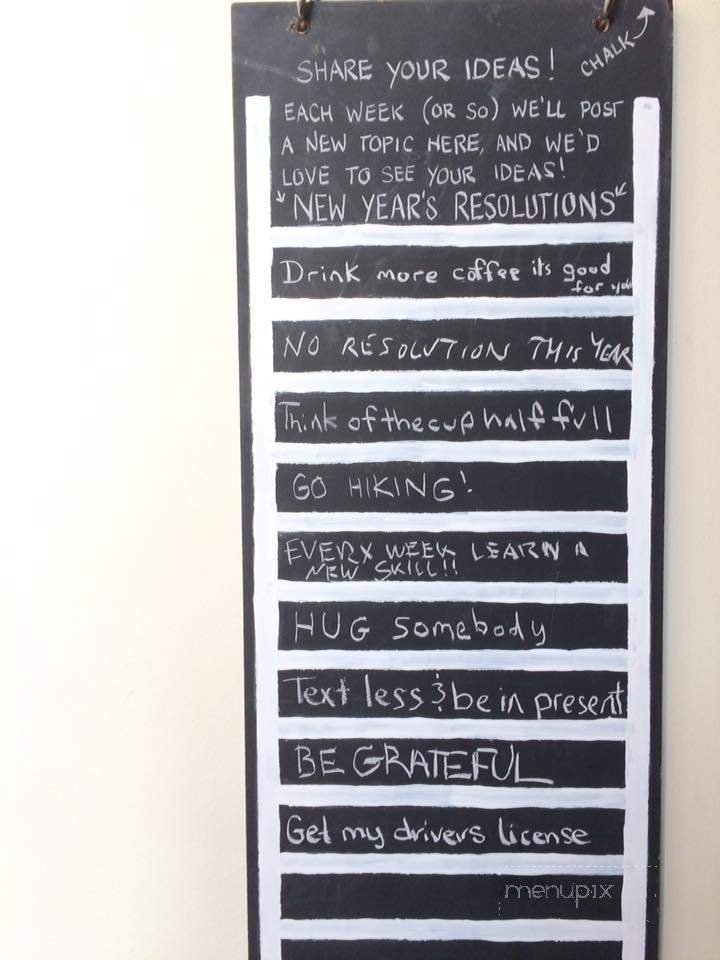 SHARE YOUR IDEAS!
CHALK
EACH WEEK (OR SO) WE'LL POST
A NEW TOPIC HERE, AND WE'D
LOVE TO SEE YOUR IDEAS!
"NEW YEAR'S RESOLUTIONS"
Drink more coffee its good
for you
NO RESOLUTION THIS YEAR
Think of the cup half full
GO HIKING!
EVERY WEEK LEARN A
NEW SKILL!!
HUG Somebody
Text less & be in present
BE GRATEFUL
Get my drivers license
menupix